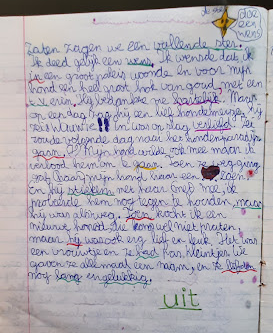 doe een wens
Laten zagen we een vallende ster.
Ik deed gelijk een wens, ik wenste dat ik
in een groot paleis woonde en voor mijn
hond een heel groot hok van goud, met een
tuin erin. Hij bedankte me hartelijk. Maar
op een dag zag hij een lief hondemeisje, hij
zei WAUWIE!! en was op slag verliefd. Ze
zoude volgende dag naar het hondenparadijs
gaan. Mijn hond wilde ook mee maar ik
verbood hem om te gaan. Toen ze weg ging
gaf (haar) mijn hond haar een zoen
en hij stiekem met haar mee, ik
probeerde hem nog tegen te houden, maar
hij was al weg. Toen kocht ik een
nieuwe hond, die kon wel niet praten
maar hij was ook erg lief en leuk. Het was
een vrouwtje en ze had kleintjes we
gaven ze allemaal een naam, en ze leefden
nog lang en gelukkig.
uit